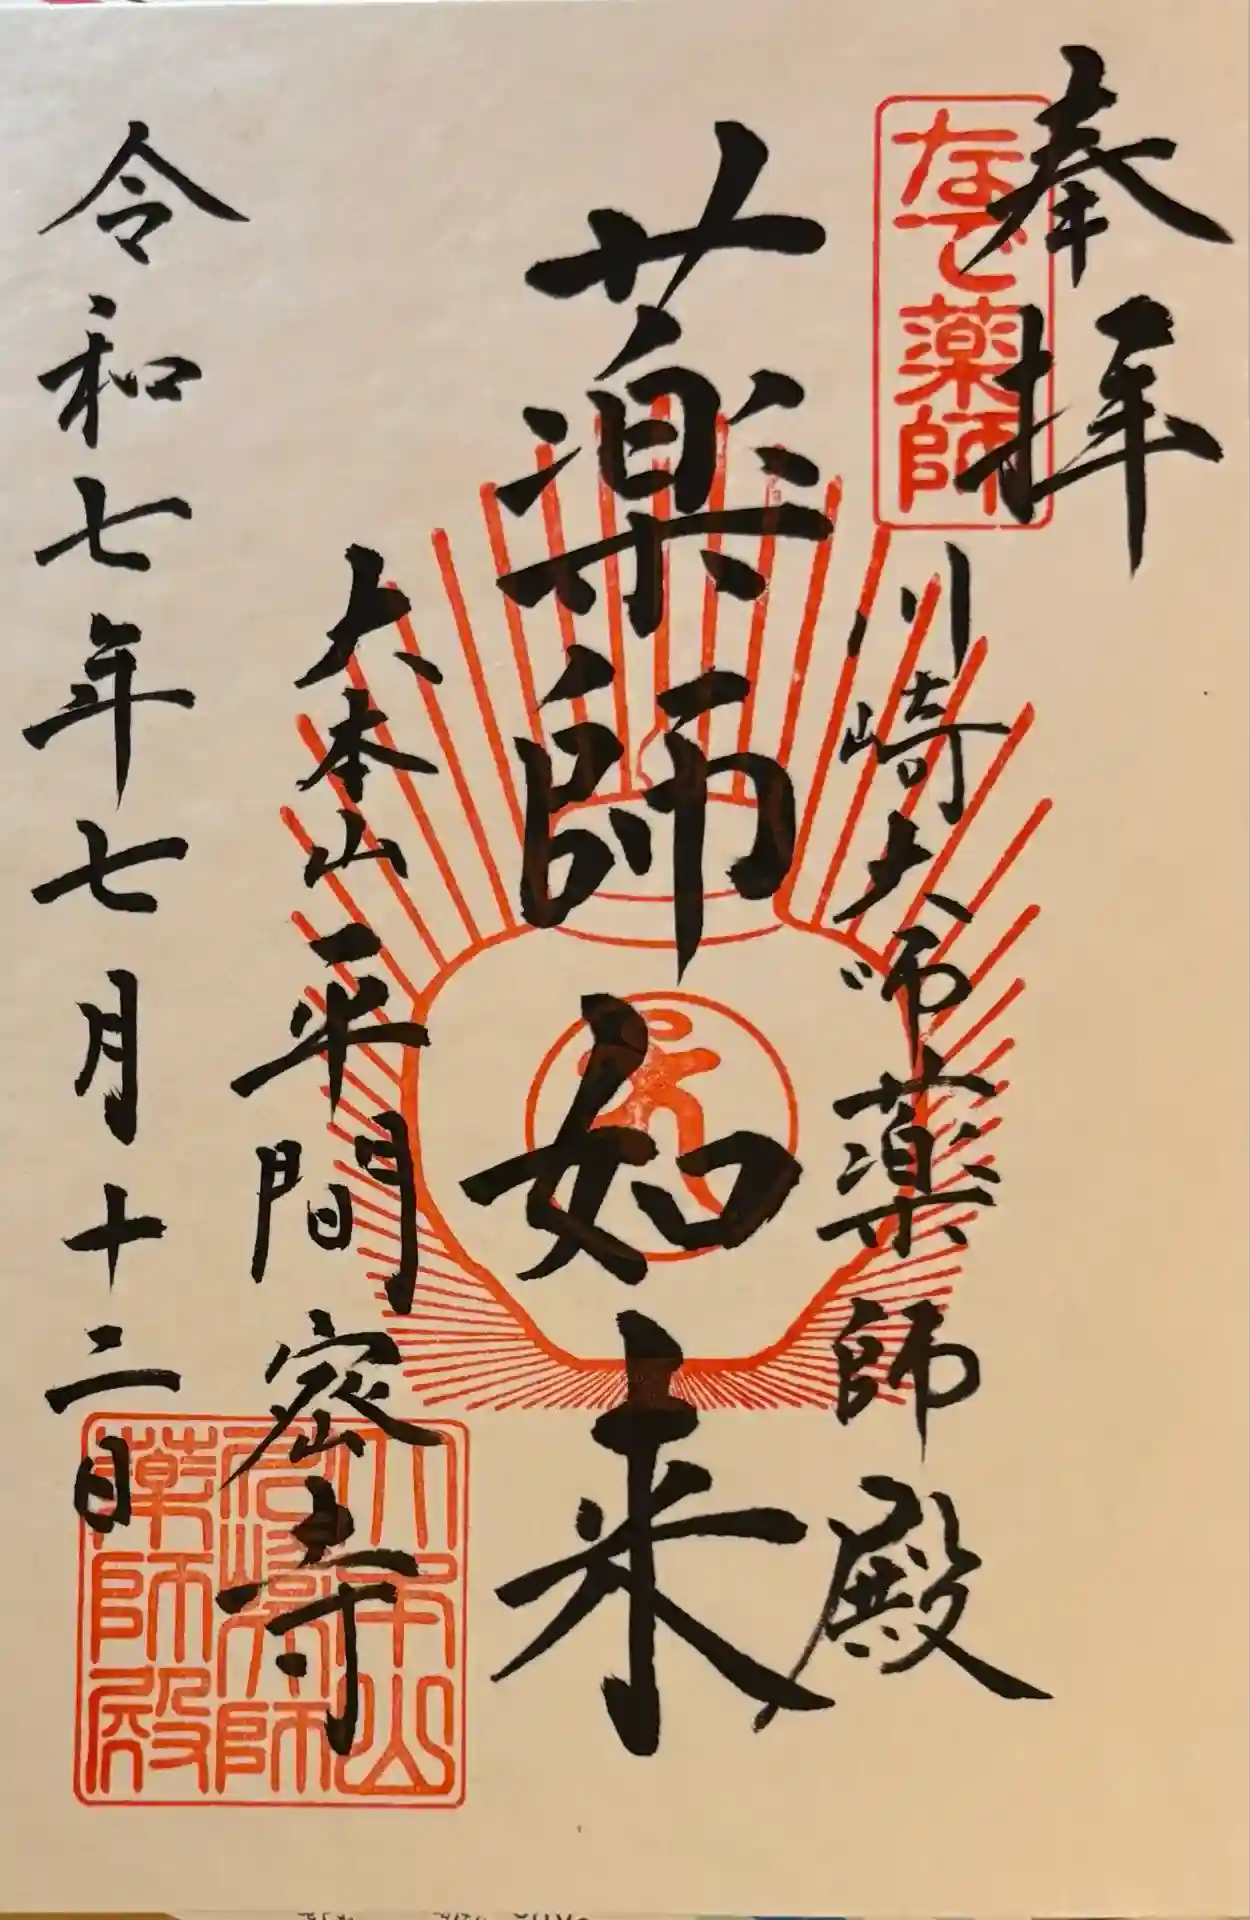 奉拝
なで薬師
川崎大師薬師殿
薬師如来
大本山平間密寺
令和七年七月十二日
大本山
川崎大師
薬師殿